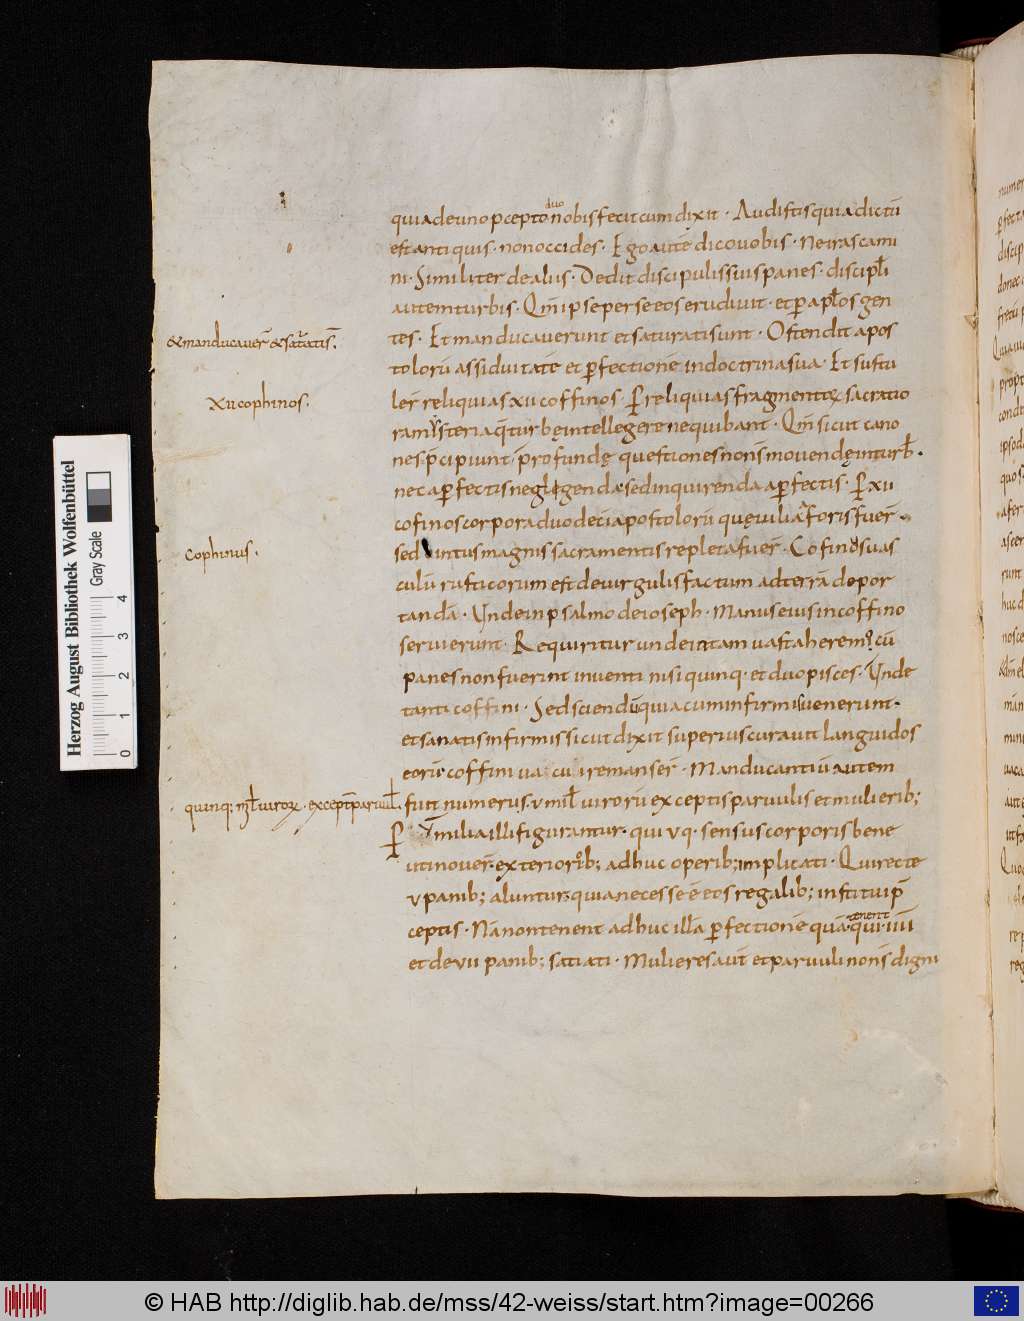 quia de uno pcepto duo nobis fecit cum dixit · Audistis quia dictū
est antiquis · non occides · Ego autē dico vobis · Ne irascami
ni · Similiter de aliis · Dedit discipulis suis panes · discipłi
autem turbis · Qm̄ ipse per se eos erudivit · et p apłos gen
tes · Et manducaverunt et saturati sunt · Ostendit apos
&manducaver̄ &saturatis̄.
tolorū assiduitatē et pfectionē in doctrina sua · Et sustu
ler reliquias xii coffinos · P reliquias fragmentorum sacratio
xii cophinos.
ra misteria q̄ turbę intellegere nequibant · Qm̄ sicut cano
nes pcipiunt · profundę questiones non s̄ movendę in turb ·
nec a pfectis negligendæ sed inquirenda a pfectis · P xii
cofinos corpora duodeci apostolorū quę vilia foris fuer
sed intus magnis sacramentis repleta fuer · Cofinus vas
cophinus.
culū rusticorum est de virgulis factum ad terrā depor
tandā · Unde in psalmo de ioseph · Manus eius in coffino
servierunt · Requiritur unde in tam vasta heremo cū
panes non fuerint inventi nisi quinq· et duo pisces · Unde
tanti coffini · Sed sciendū quia cum infirmis venerunt ·
et sanatis infirmis sicut dixit superius curavit languidos
eorū coffini vacui remanser · Manducantiū autem
quinq; mł viroꝝ · except̄ parvuł.
fuit numerus · v mił virorū exceptis parvulis et mulierib;
P v milia illi figurantur · qui vq· sensus corporis bene
uti nover · exteriorib; adhuc operib; implicati · Qui recte
v panib; aluntur · quia necesse ē eos regalib; institui p
ceptis · Nā non tenent adhuc illā pfectionē quā tenent qui · iiii
et de vii panib; satiati · Mulieres aut et parvuli non s̄ digni
Herzog August Bibliothek Wolfenbüttel
Gray Scale
0 1 2 3 4
© HAB http://diglib.hab.de/mss/42-weiss/start.htm?image=00266